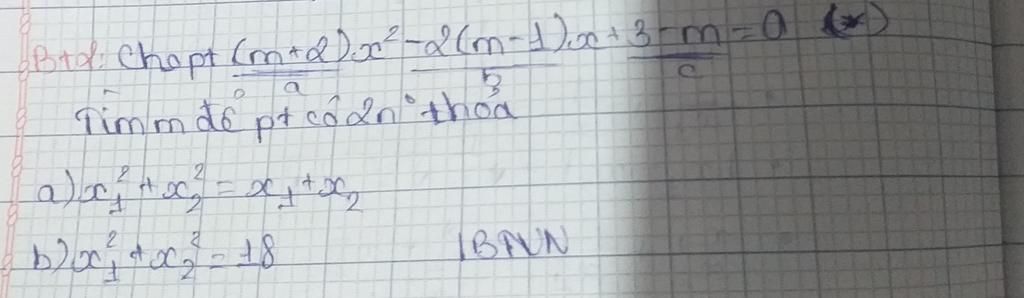 Bt2: Cho pt (m+2).x² - 2(m-1).x + 3-m = 0 (*)
a b c
Tìm m để pt có 2n° thoả
a) x₁² + x₂² = x₁ + x₂
b) x₁² + x₂² = 18 1BTVN